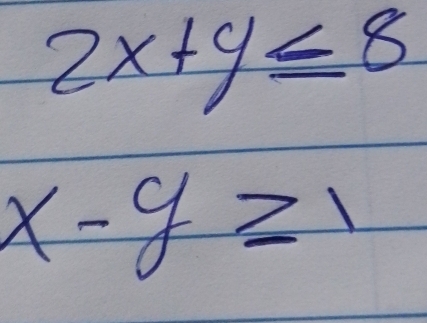 2x+y≤8
x-y≥1